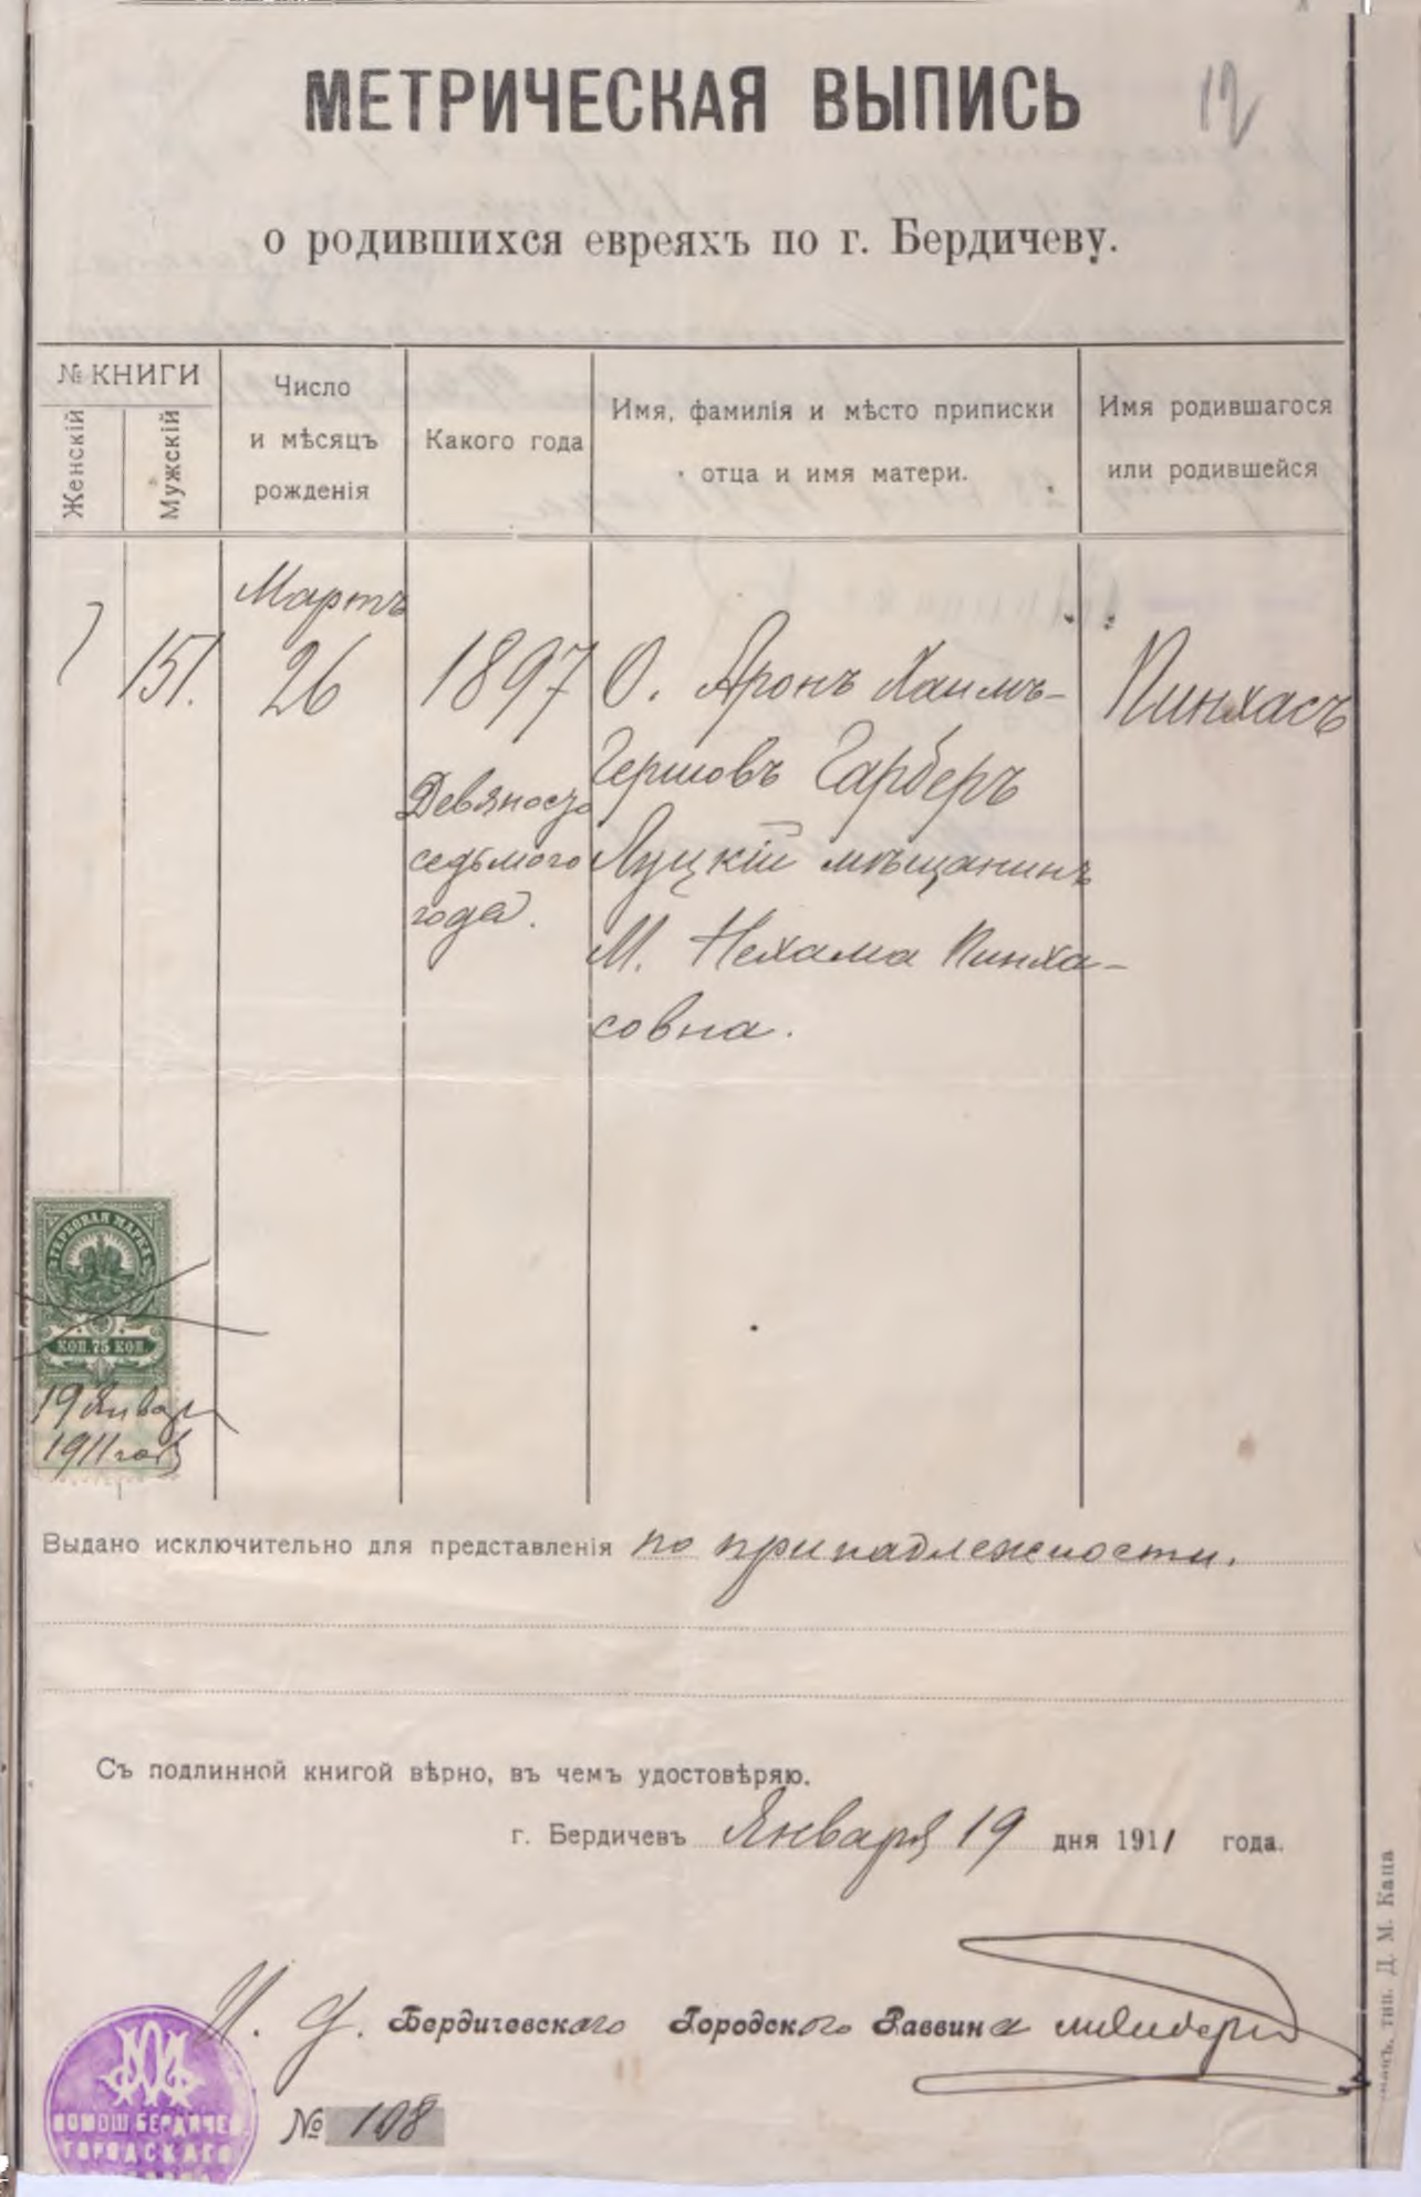 МЕТРИЧЕСКАЯ ВЫПИСЬ
12
о родившихся евреяхъ по г. Бердичеву.
№ КНИГИ
Женскій
Мужскій
Число
и мѣсяцъ
рожденія
Какого года
Имя, фамилія и мѣсто приписки
отца и имя матери.
Имя родившагося
или родившейся
151.
Мартъ
26
1897
Девяносто
седьмого
года.
О. Аронъ Хаимъ-
Гершовъ Гарберъ
Луцкій мѣщанинъ
М. Нехама Пинха-
совна.
Пинхасъ
ГЕРБОВАЯ МАРКА
КОП. 75 КОП.
19 Января
1911 года
Выдано исключительно для представленія по принадлежности.
Съ подлинной книгой вѣрно, въ чемъ удостовѣряю.
г. Бердичевъ Января 19 дня 1911 года.
И. д. Бердичевского Городского Раввина
ПОМОЩ. БЕРДИЧЕВ
ГОРОДСКАГО
№ 108
тип. Д. М. Каца